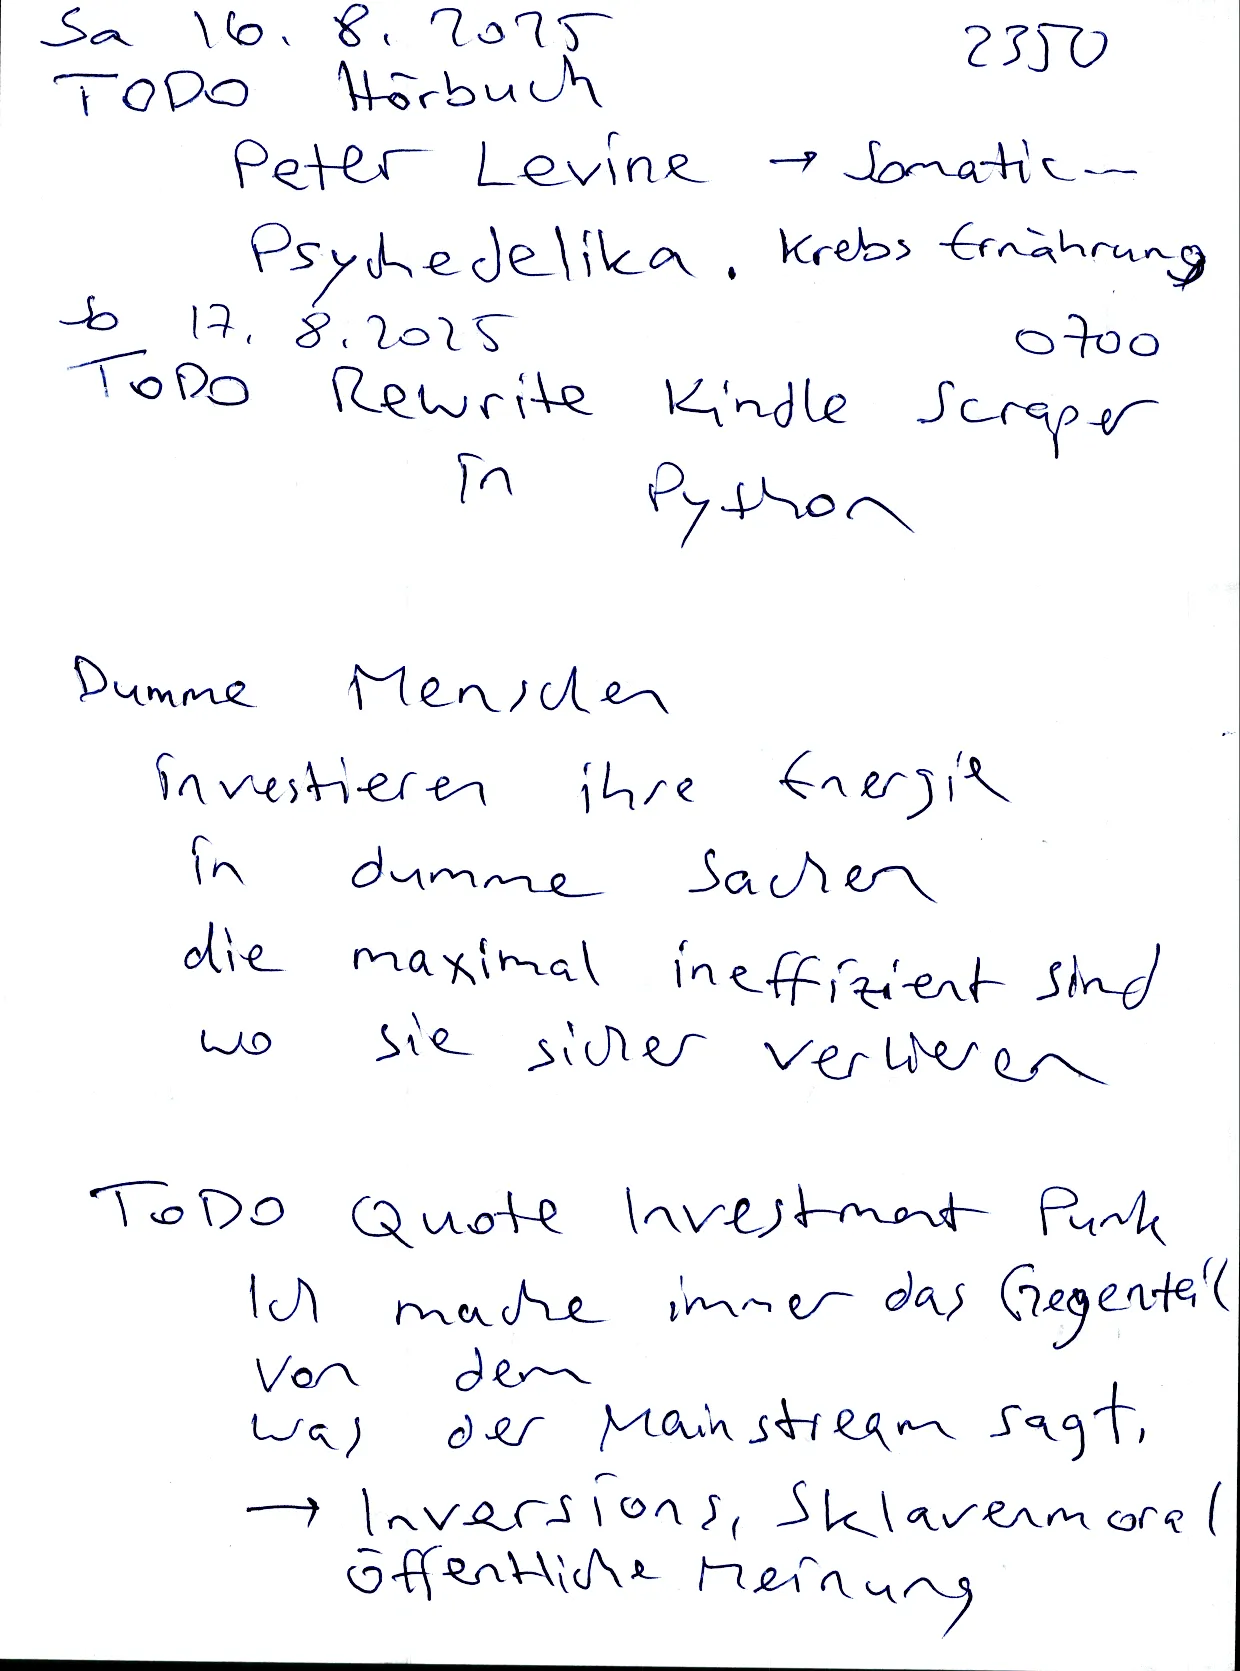 Sa 16. 8. 2025 2350
TODO Hörbuch
Peter Levine → Somatic
Psychedelika. Krebs Ernährung
So 17. 8. 2025 0700
ToDO Rewrite Kindle Scraper
in Python
Dumme Menschen
investieren ihre Energie
in dumme Sachen
die maximal ineffizient sind
wo sie sicher verlieren
ToDO Quote Investment Punk
Ich mache immer das Gegenteil
von dem
was der Mainstream sagt.
→ Inversions, Sklavenmoral
öffentliche Meinung